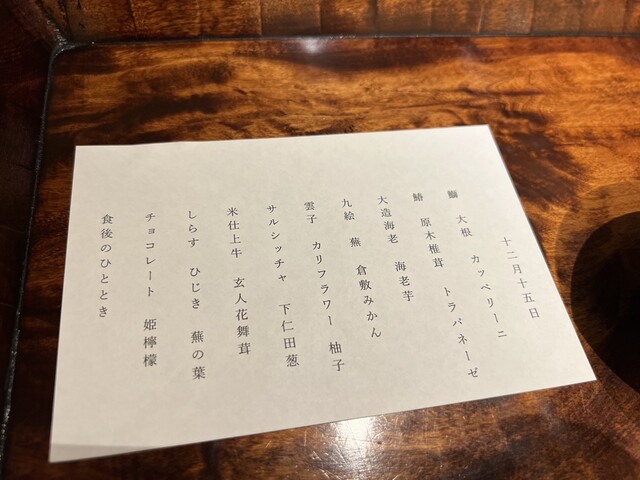 十二月十五日
鰤 大根 カッペリーニ
鰆 原木椎茸 トラパネーゼ
大造海老 海老芋
九絵 蕪 倉敷みかん
雲子 カリフラワー 柚子
サルシッチャ 下仁田葱
米仕上牛 玄人花舞茸
しらす ひじき 蕪の葉
チョコレート 姫檸檬
食後のひととき